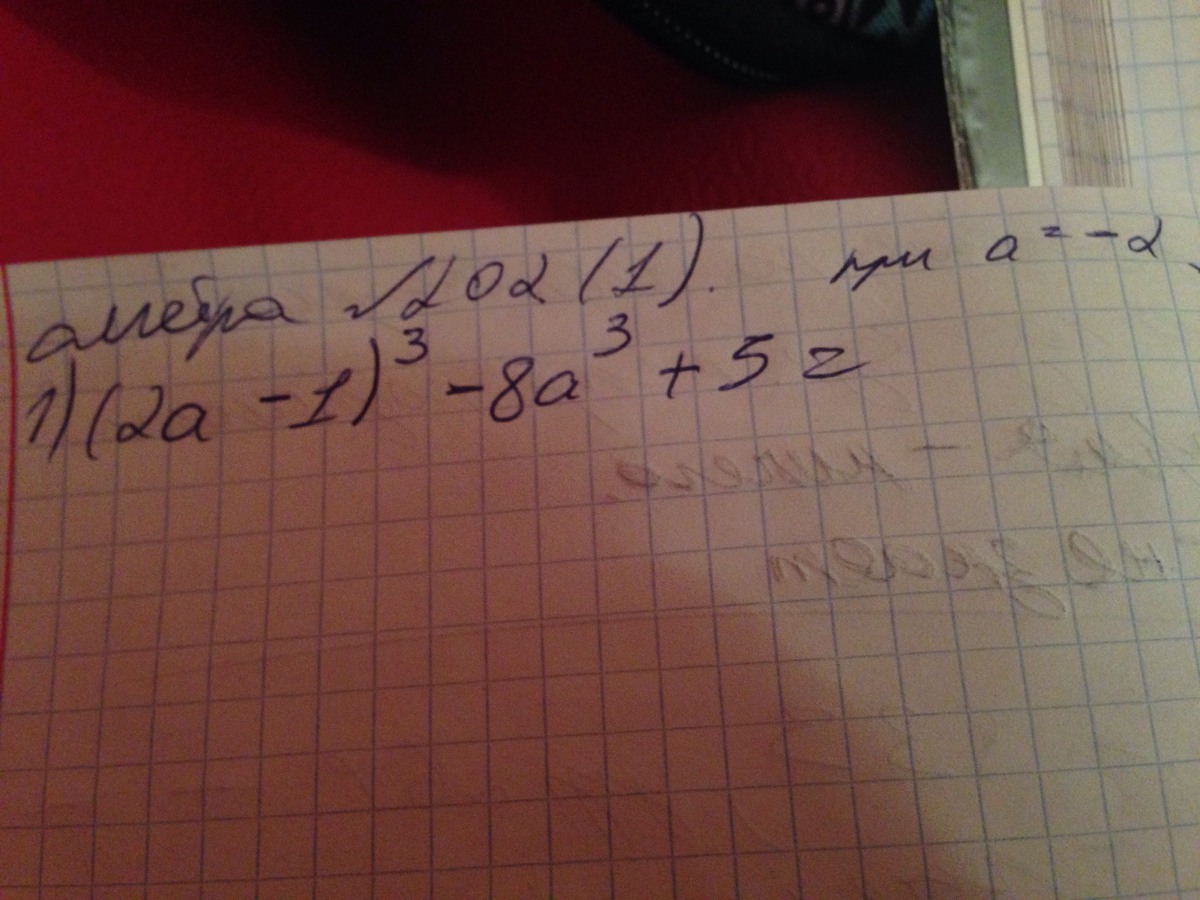 алгебра №202 (1). при a = -2
1) (2a - 1)³ - 8a³ + 5 =